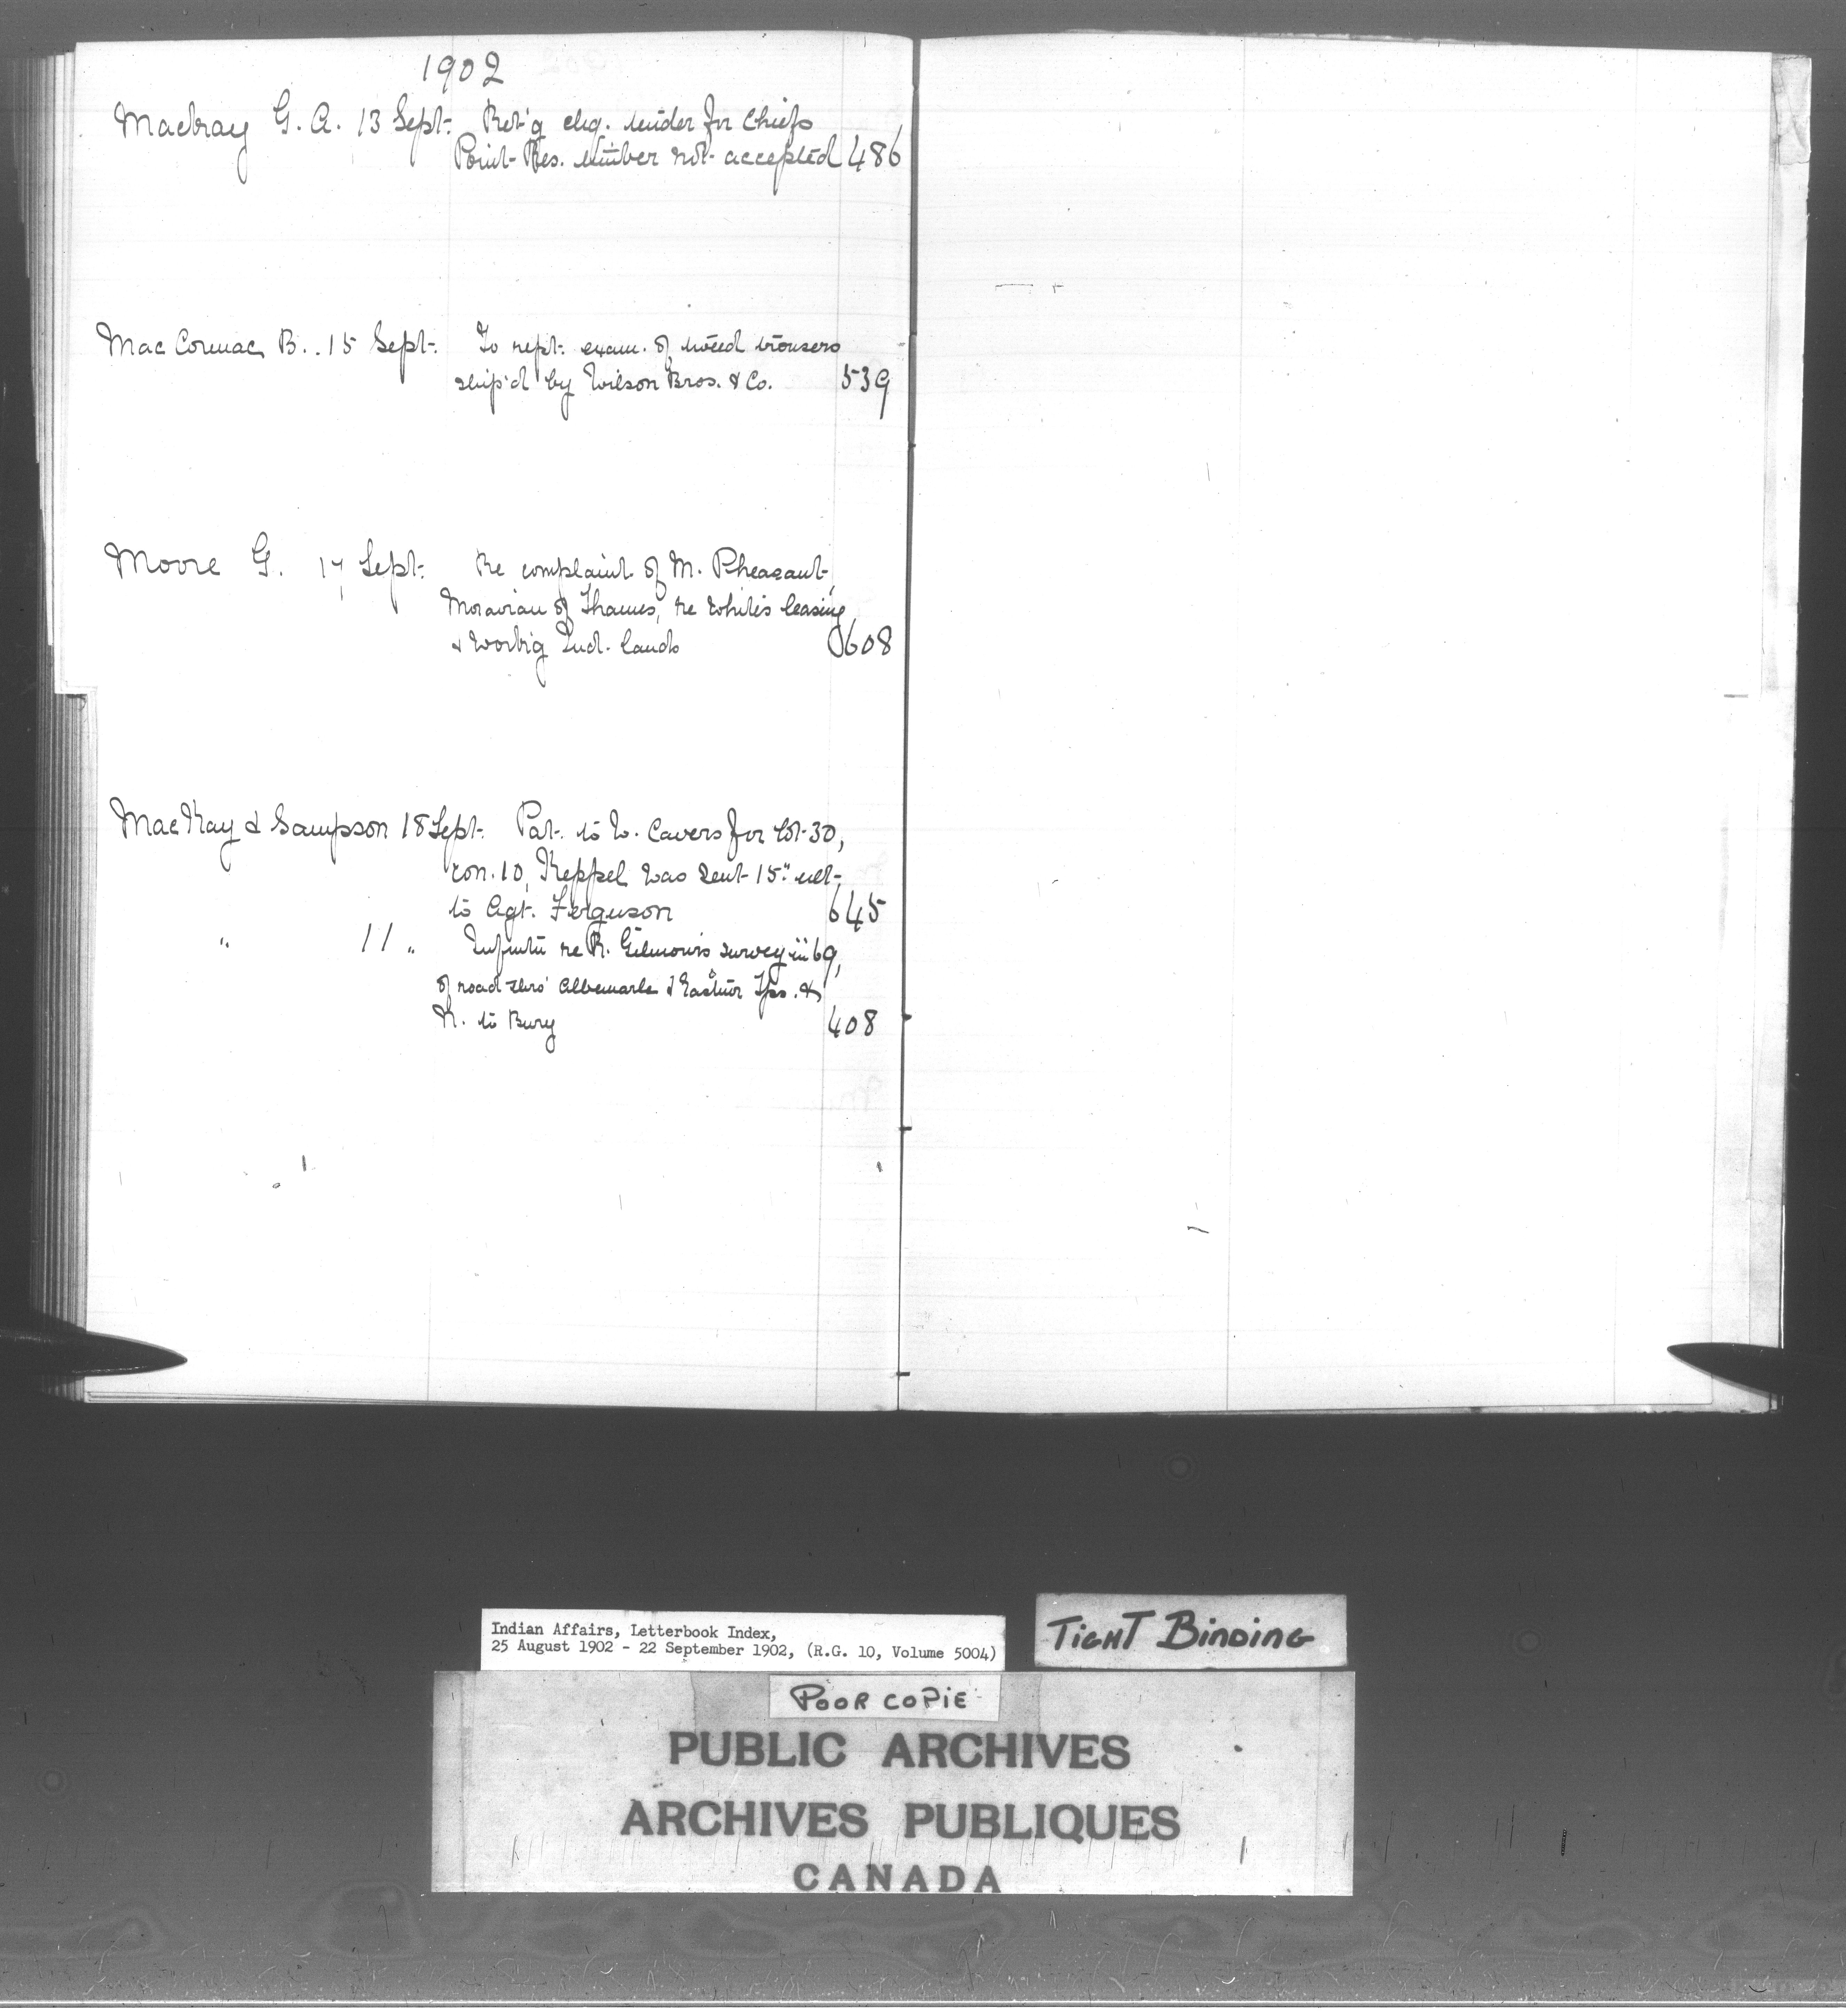 1902
Mackay G. A. 13 Sept. Ret'g chq. tender for Chiefs
Point Res. timber not accepted 486
MacCormac B. 15 Sept. To rept. exam. of tweed trousers
ship'd by Wilson Bros. & Co. 539
Moore G. 17 Sept. Re complaint of M. Pheasant,
Moravian of Thames, re Whites leasing
& work'g Ind. lands 608
MacKay & Sampson 18 Sept. Pat. to W. Cavers for lot 30,
con. 10, Keppel was sent 15" ult.
to Agt. Ferguson 645
" 11 " re R. Gilmour's survey in 69,
of road thro' Albemarle & Eastnor Tps. &
N. to Bury 408
Indian Affairs, Letterbook Index,
25 August 1902 - 22 September 1902, (R.G. 10, Volume 5004)
TIGHT BINDING
POOR COPIE
PUBLIC ARCHIVES
ARCHIVES PUBLIQUES
CANADA